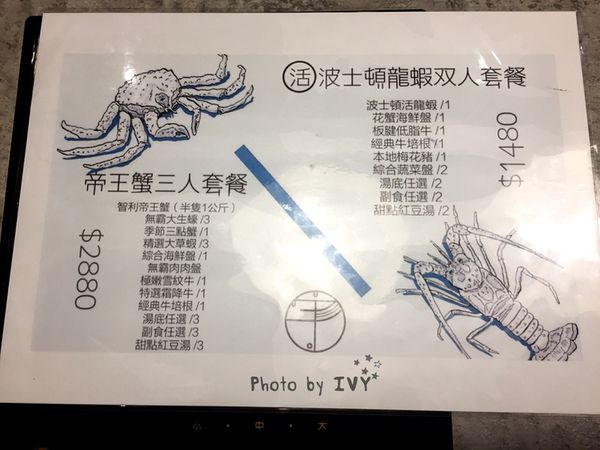 活波士頓龍蝦双人套餐
波士頓活龍蝦/1
花蟹海鮮盤/1
板腱低脂牛/1
經典牛培根/1
本地梅花豬/1
綜合蔬菜盤/2
湯底任選/2
副食任選/2
甜點紅豆湯/2
$1480
帝王蟹三人套餐
智利帝王蟹(半隻1公斤)
無霸大生蠔/3
季節三點蟹/1
精選大草蝦/3
綜合海鮮盤/1
無霸肉肉盤
極嫩雪紋牛/1
特選霜降牛/1
經典牛培根/1
湯底任選/3
副食任選/3
甜點紅豆湯/3
$2880
Photo by IVY
小 · 中 · 大